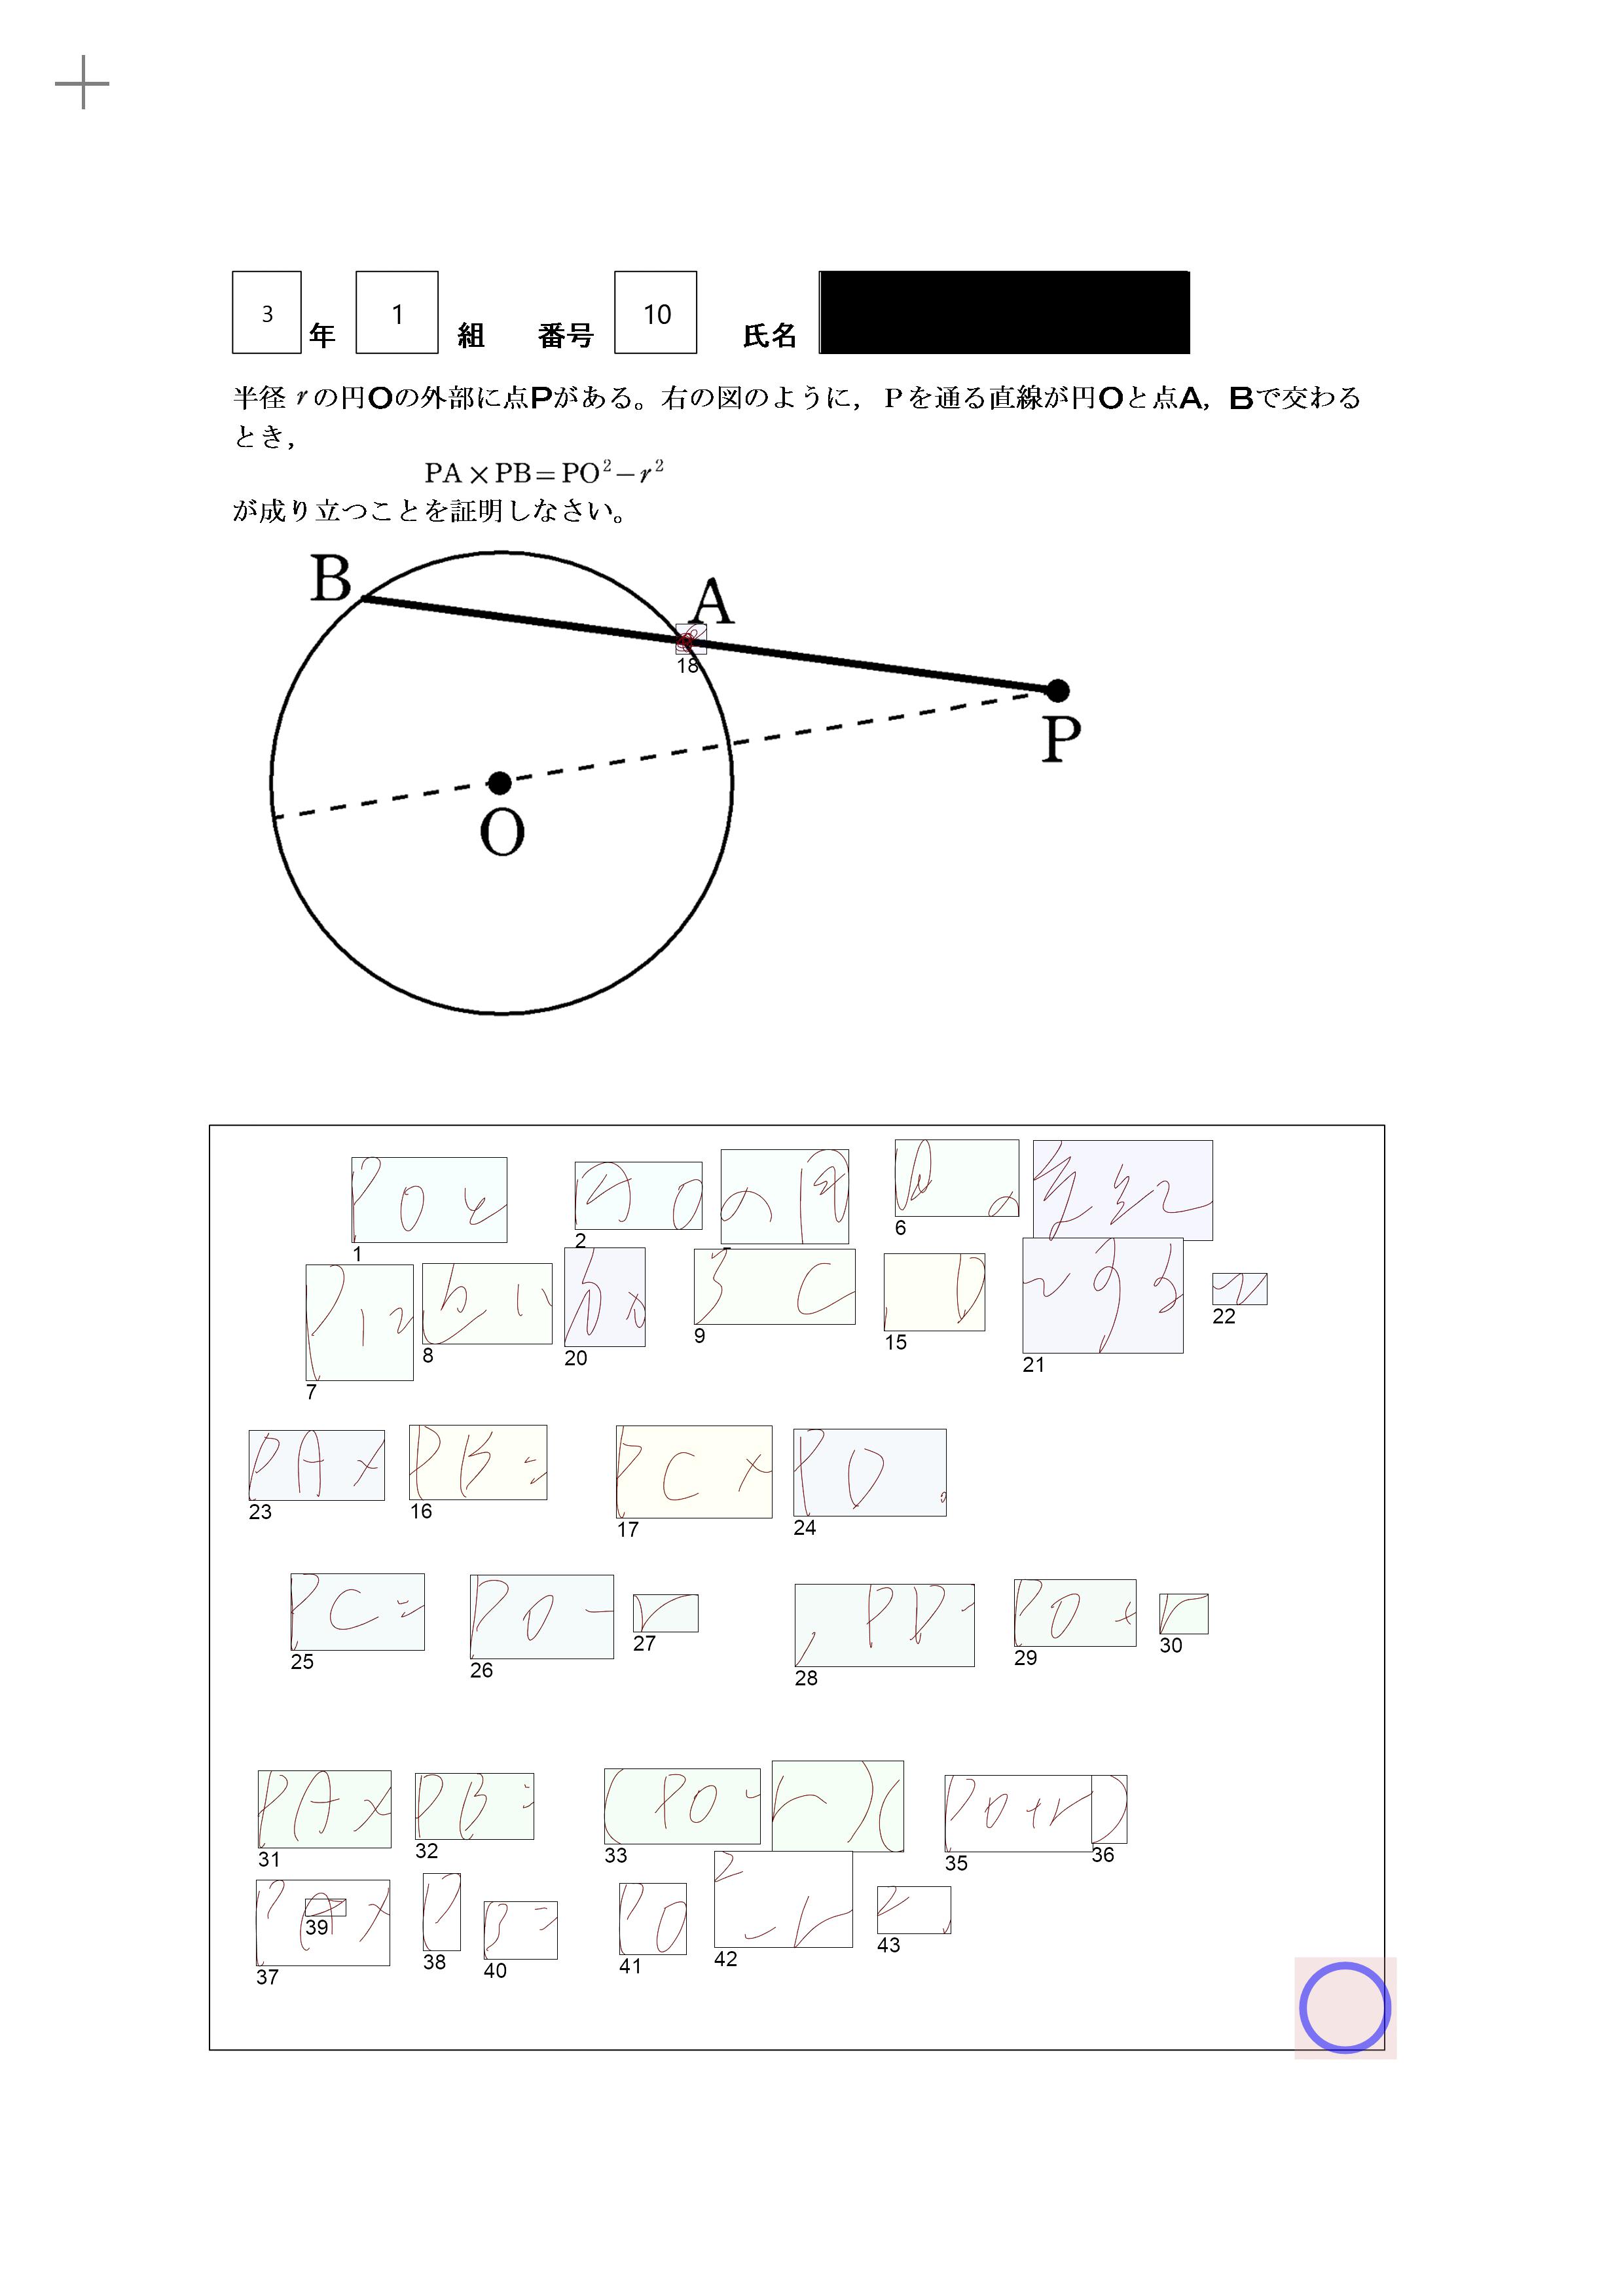 3 年 1 組 番号 10 氏名
半径 r の円Oの外部に点Pがある。右の図のように，Pを通る直線が円Oと点A，Bで交わる
とき，
PA×PB=PO²−r²
が成り立つことを証明しなさい。
B
A
18
P
O
POと 円Oの円周の交点を
1 2 6
Pに近い方からC, Dとすると
7 8 20 9 15 21 22
PA×PB= PC×PD.
23 16 17 24
PC= PO−r , PD= PO+r
25 26 27 28 29 30
PA×PB= (PO−r)(PO+r)
31 32 33 35 36
PA×PB= PO²−r².
37 39 38 40 41 42 43